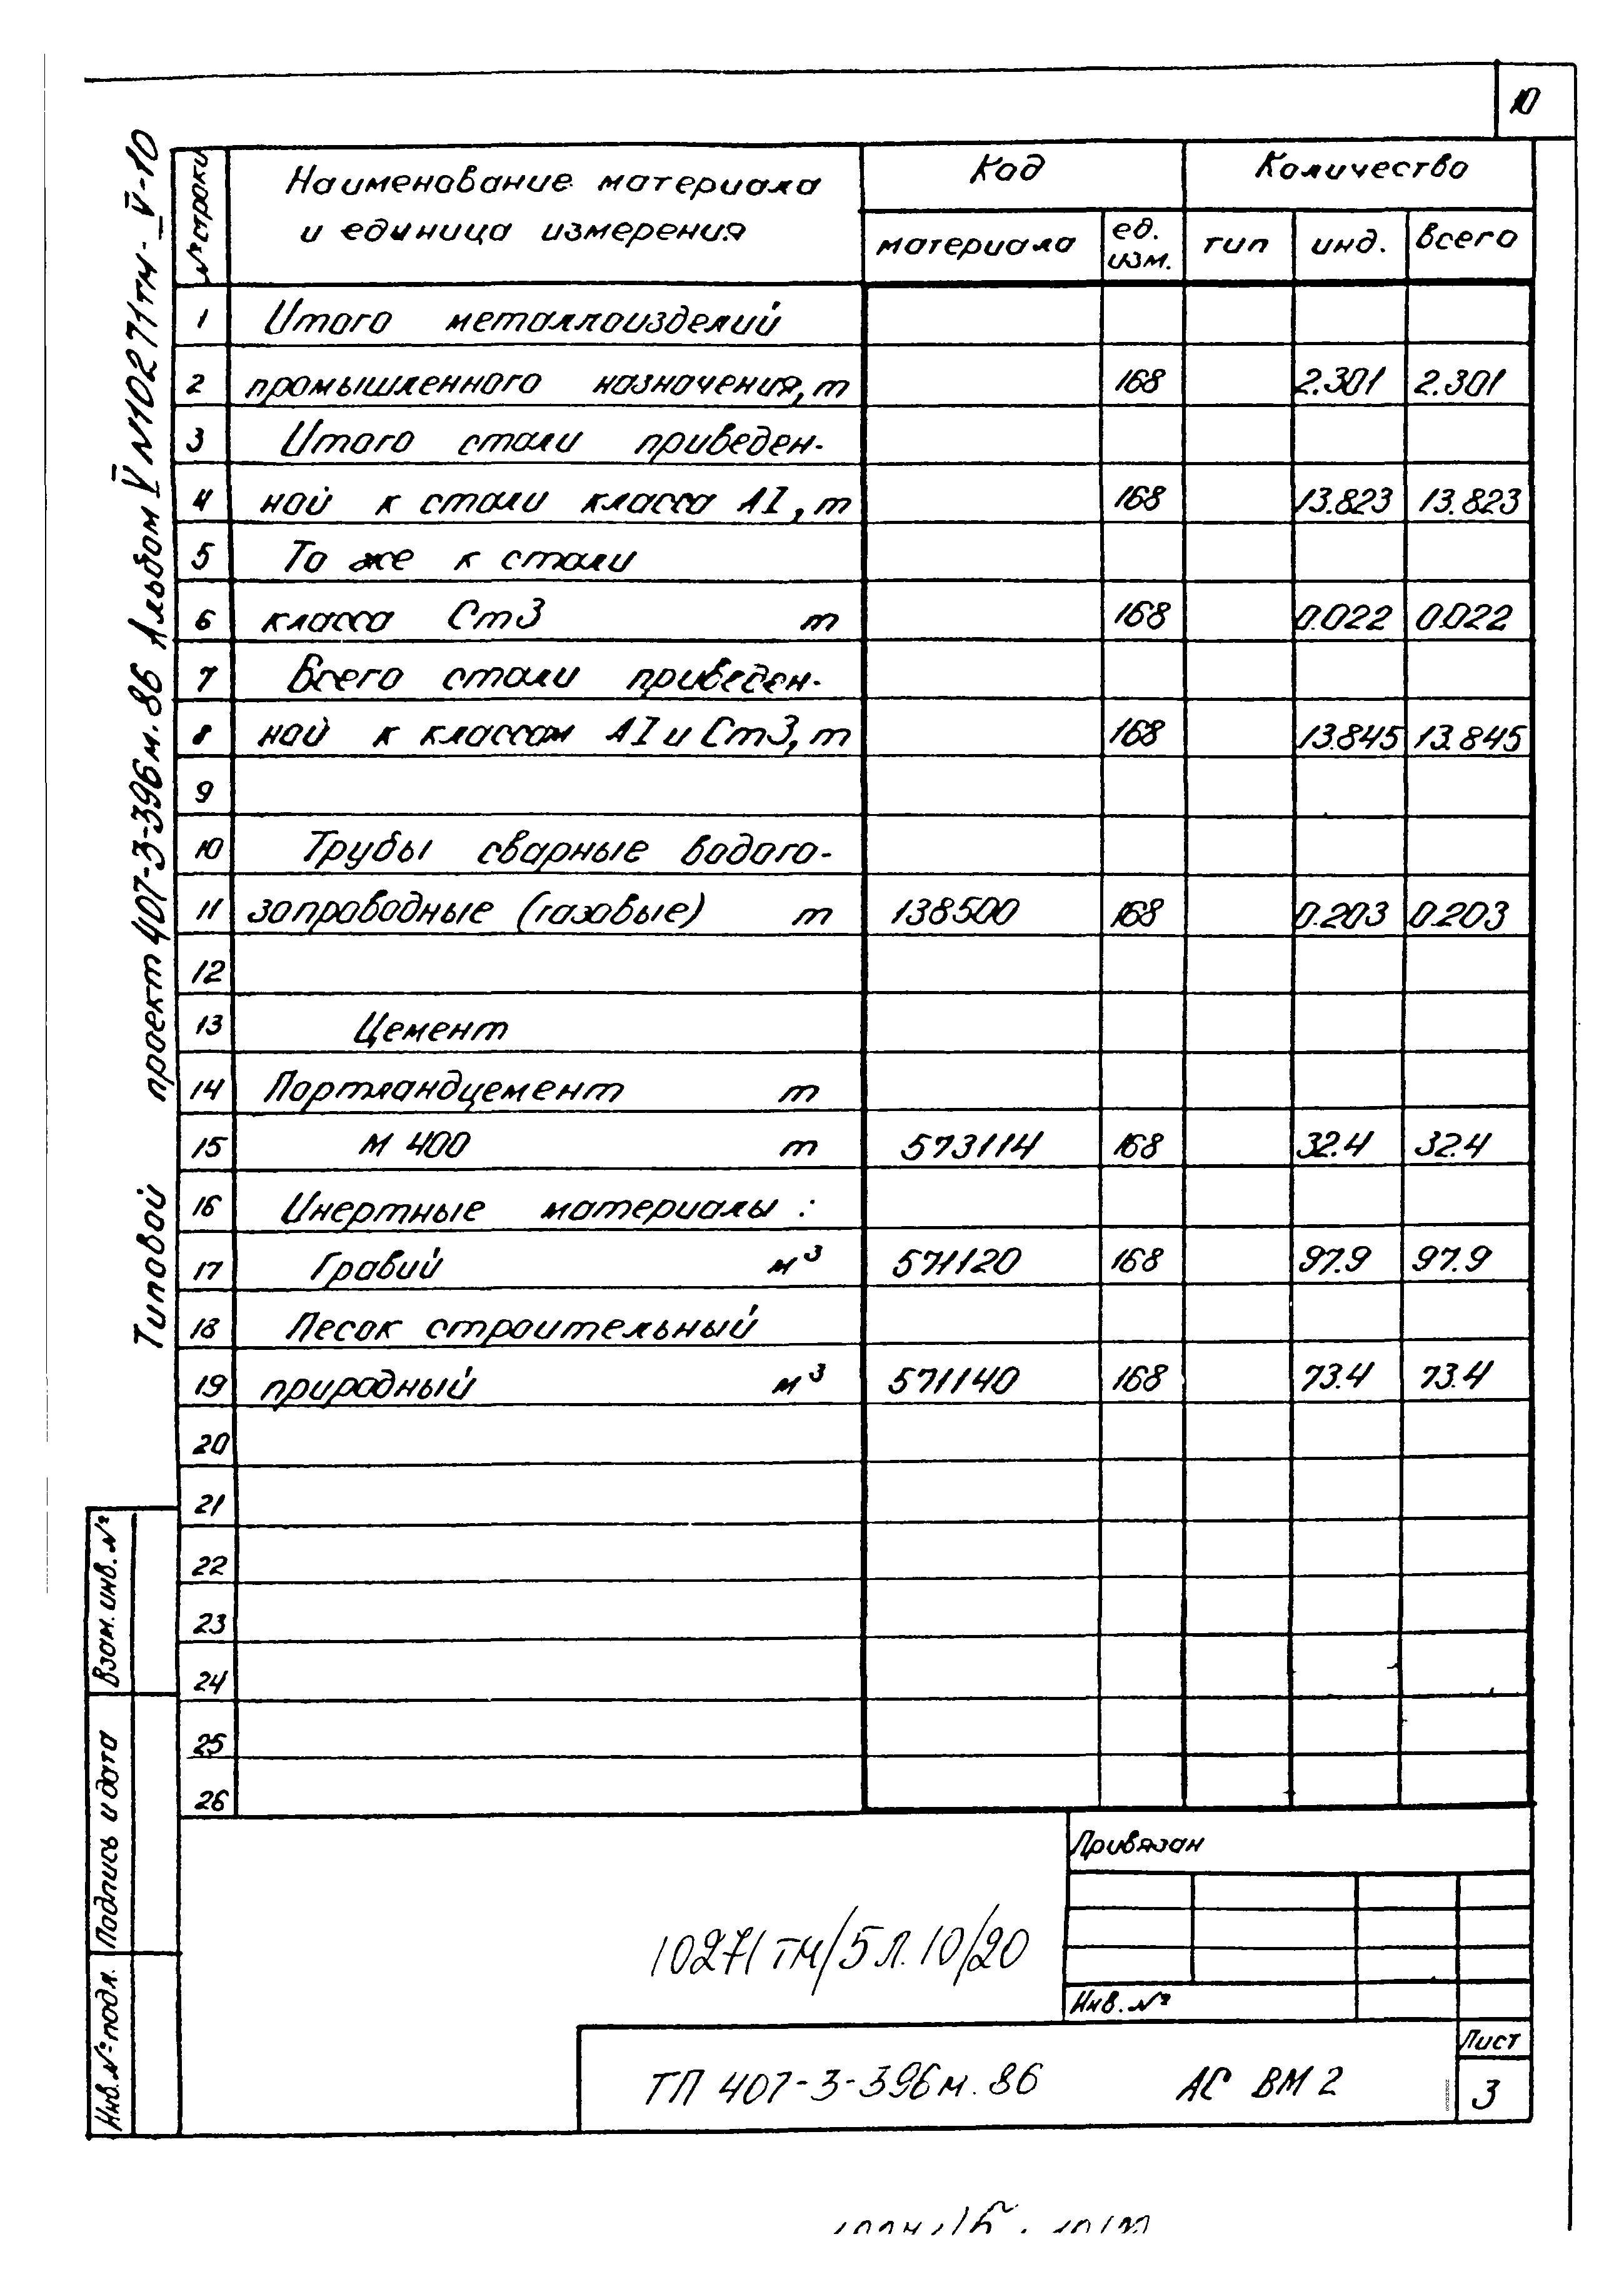 10
Типовой проект 407-3-396м.86 Альбом V N10271тм-V-10
№ строки
Наименование материала
и единица измерения
Код
Количество
материала
ед.
изм.
тип
инд.
всего
1 Итого металлоизделий
2 промышленного назначения, т 168 2.301 2.301
3 Итого стали приведен-
4 ной к стали класса АI, т 168 13.823 13.823
5 То же к стали
6 класса Ст3 т 168 0.022 0.022
7 Всего стали приведен-
8 ной к классам АI и Ст3, т 168 13.845 13.845
9
10 Трубы сварные водога-
11 запроводные (газовые) т 138500 168 0.203 0.203
12
13 Цемент
14 Портландцемент т
15 М 400 т 573114 168 32.4 32.4
16 Инертные материалы :
17 Гравий м³ 571120 168 97.9 97.9
18 Песок строительный
19 природный м³ 571140 168 73.4 73.4
20
21
22
23
24
25
26
Взам. инв. №
Подпись и дата
Инв. № подл.
Привязан
Инв. №
10271тм/5 л. 10/20
ТП 407-3-396м.86 АС ВМ 2
Лист
3